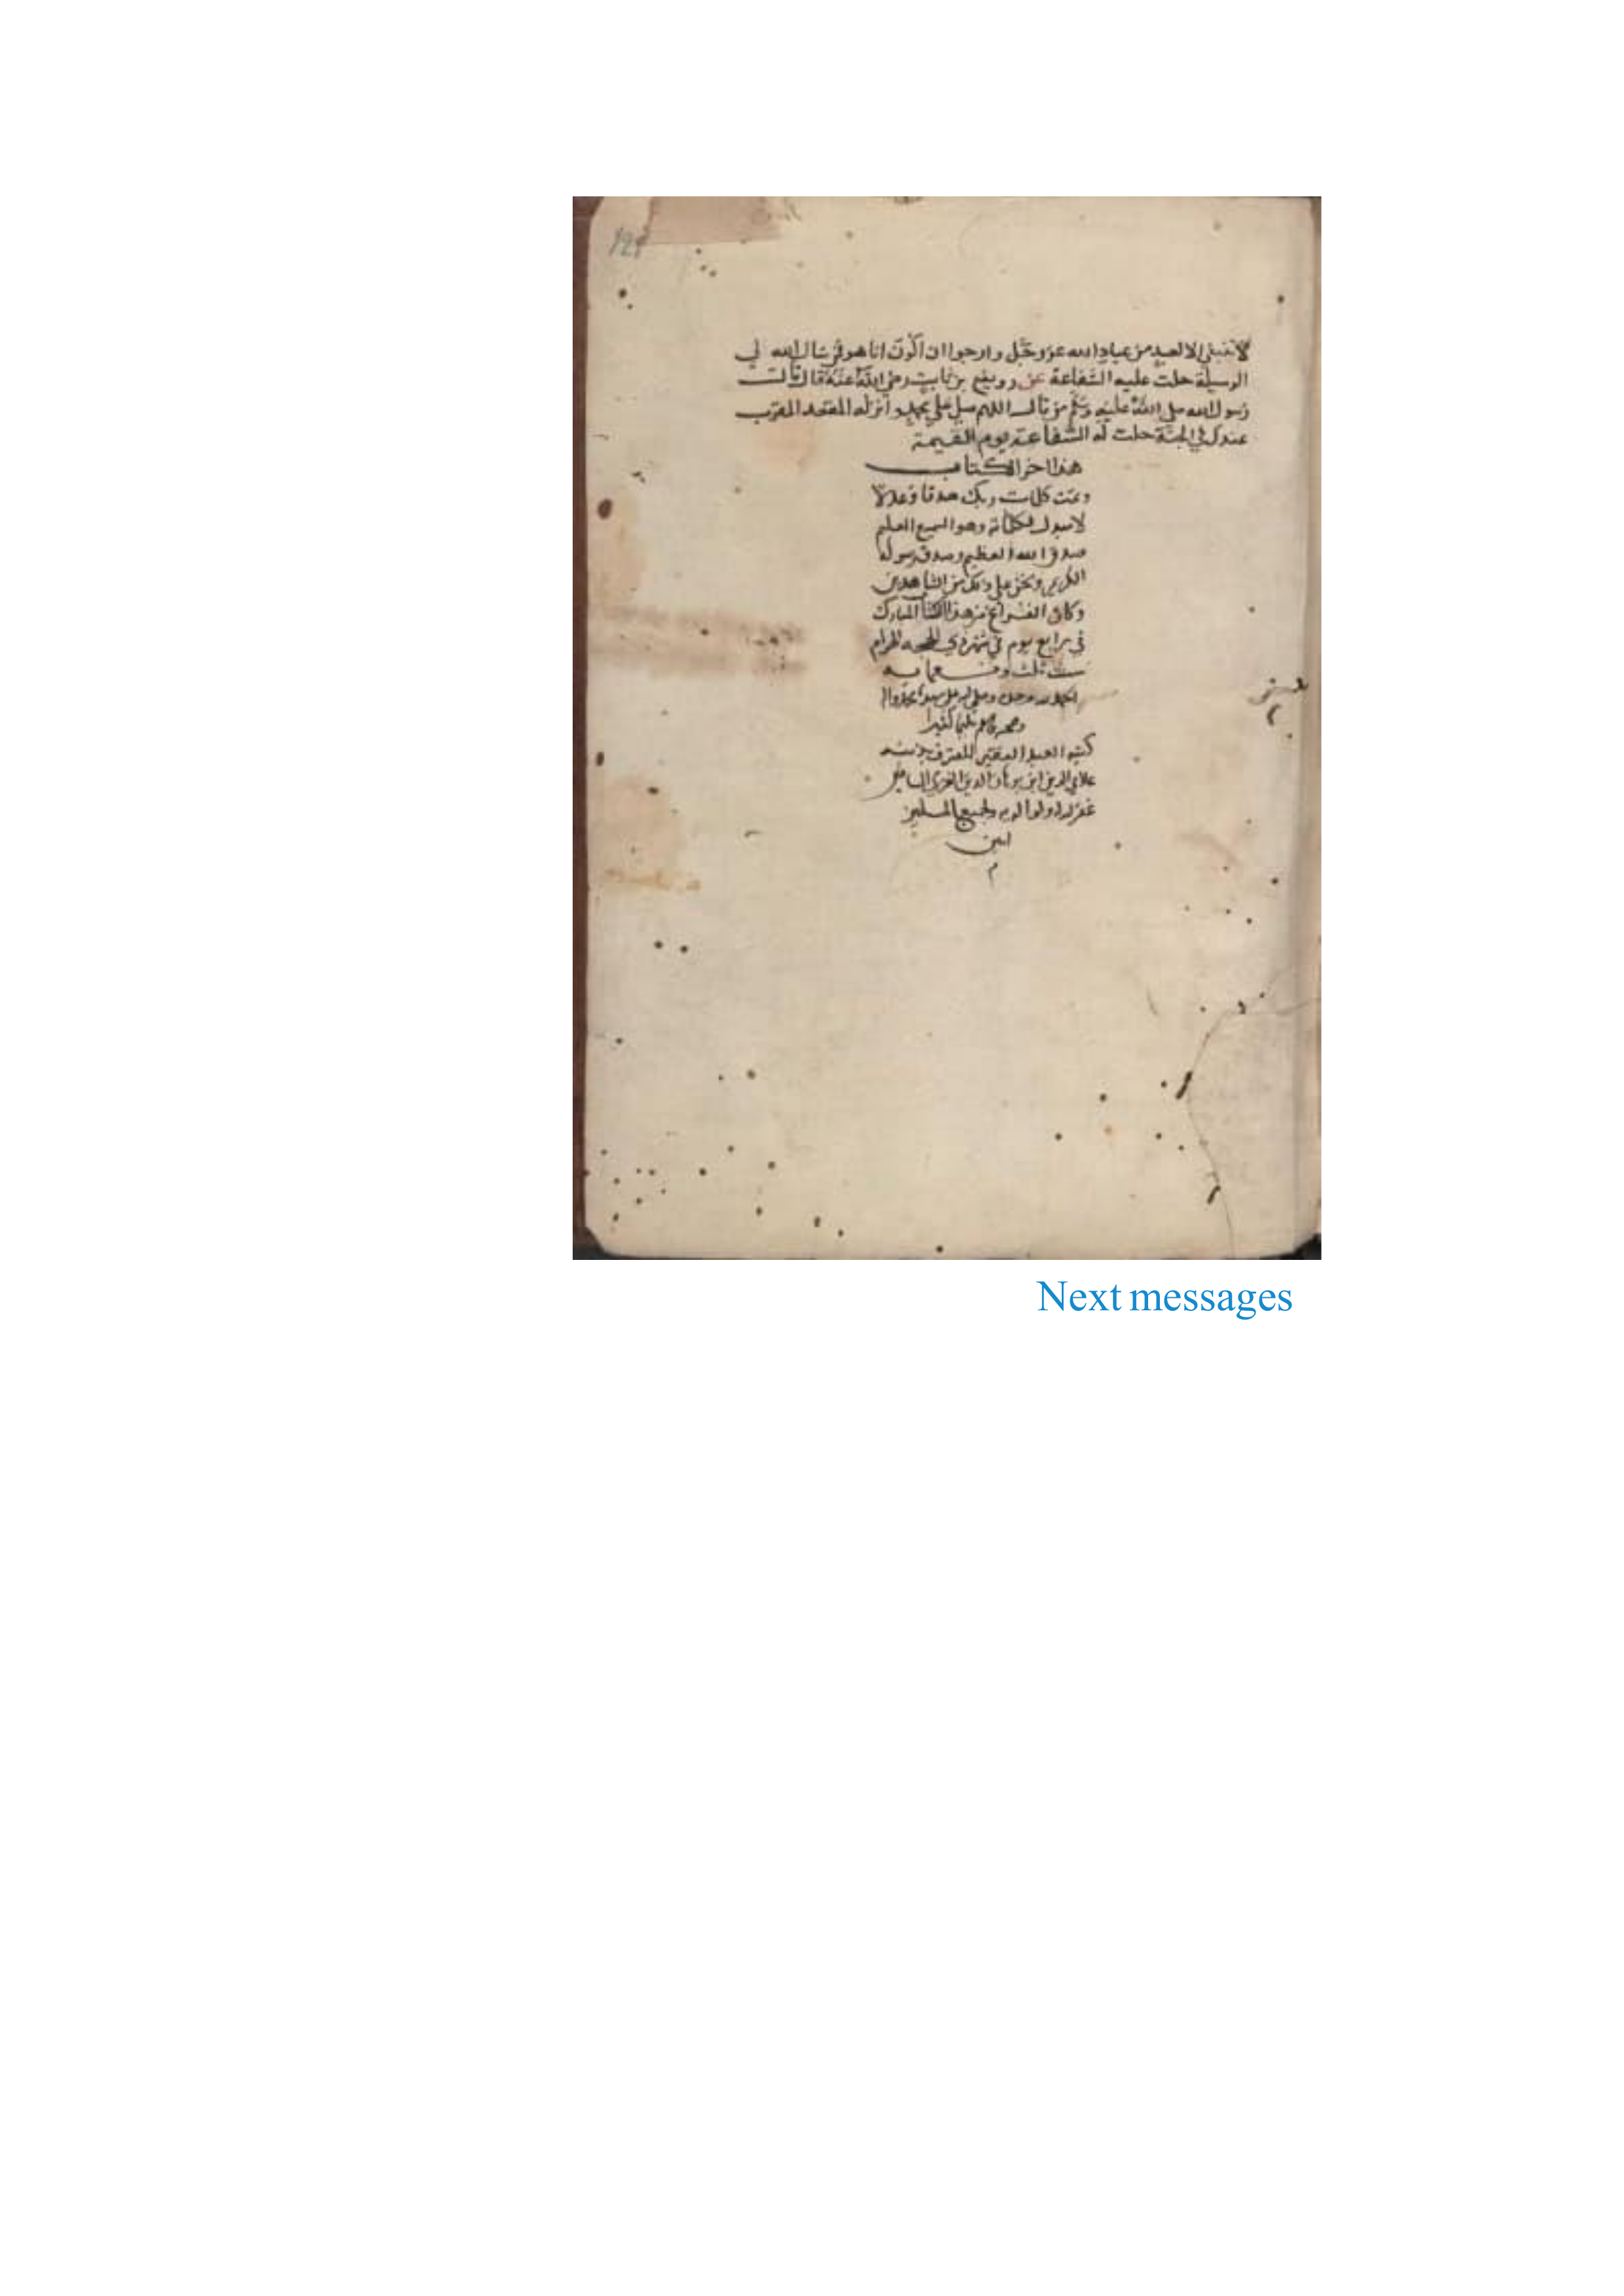 121
لا تنبغي الا لعبد من عباد الله عز وجل وارجوا ان اكون انا هو فمن سال الله لي
الوسيلة حلت عليه الشفاعة عن رويفع بن ثابت رضي الله عنه قال قال
رسول الله صلى الله عليه وسلم من قال اللهم صل على محمد وانزله المقعد المقرب
عندك في الجنة حلت له الشفاعة يوم القيمة
هذا اخر الكتاب
وتمت كلمات ربك صدقا وعدلا
لا مبدل لكلماته وهو السميع العليم
صدق الله العظيم وصدق رسوله
الكريم ونحن على ذلك من الشاهدين
وكان الفراغ من هذا الكتاب المبارك
في رابع يوم في شهر ذي الحجه الحرام
سنت ثلث و
الحمد لله وحده وصلى الله على سيدنا محمد واله
وصحبه وسلم تسليما كثيرا
كتبه العبد الفقير المعترف بذنبه
علاي الدين ابن برهان الدين الغزي
غفر الله له ولوالديه ولجميع المسلمين
امين
م
Next messages